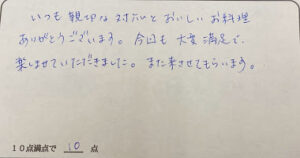 いつも親切な対応とおいしいお料理
ありがとうございます。今回も大変満足で、
楽しませていただきました。また来させてもらいます。
10点満点で 10 点